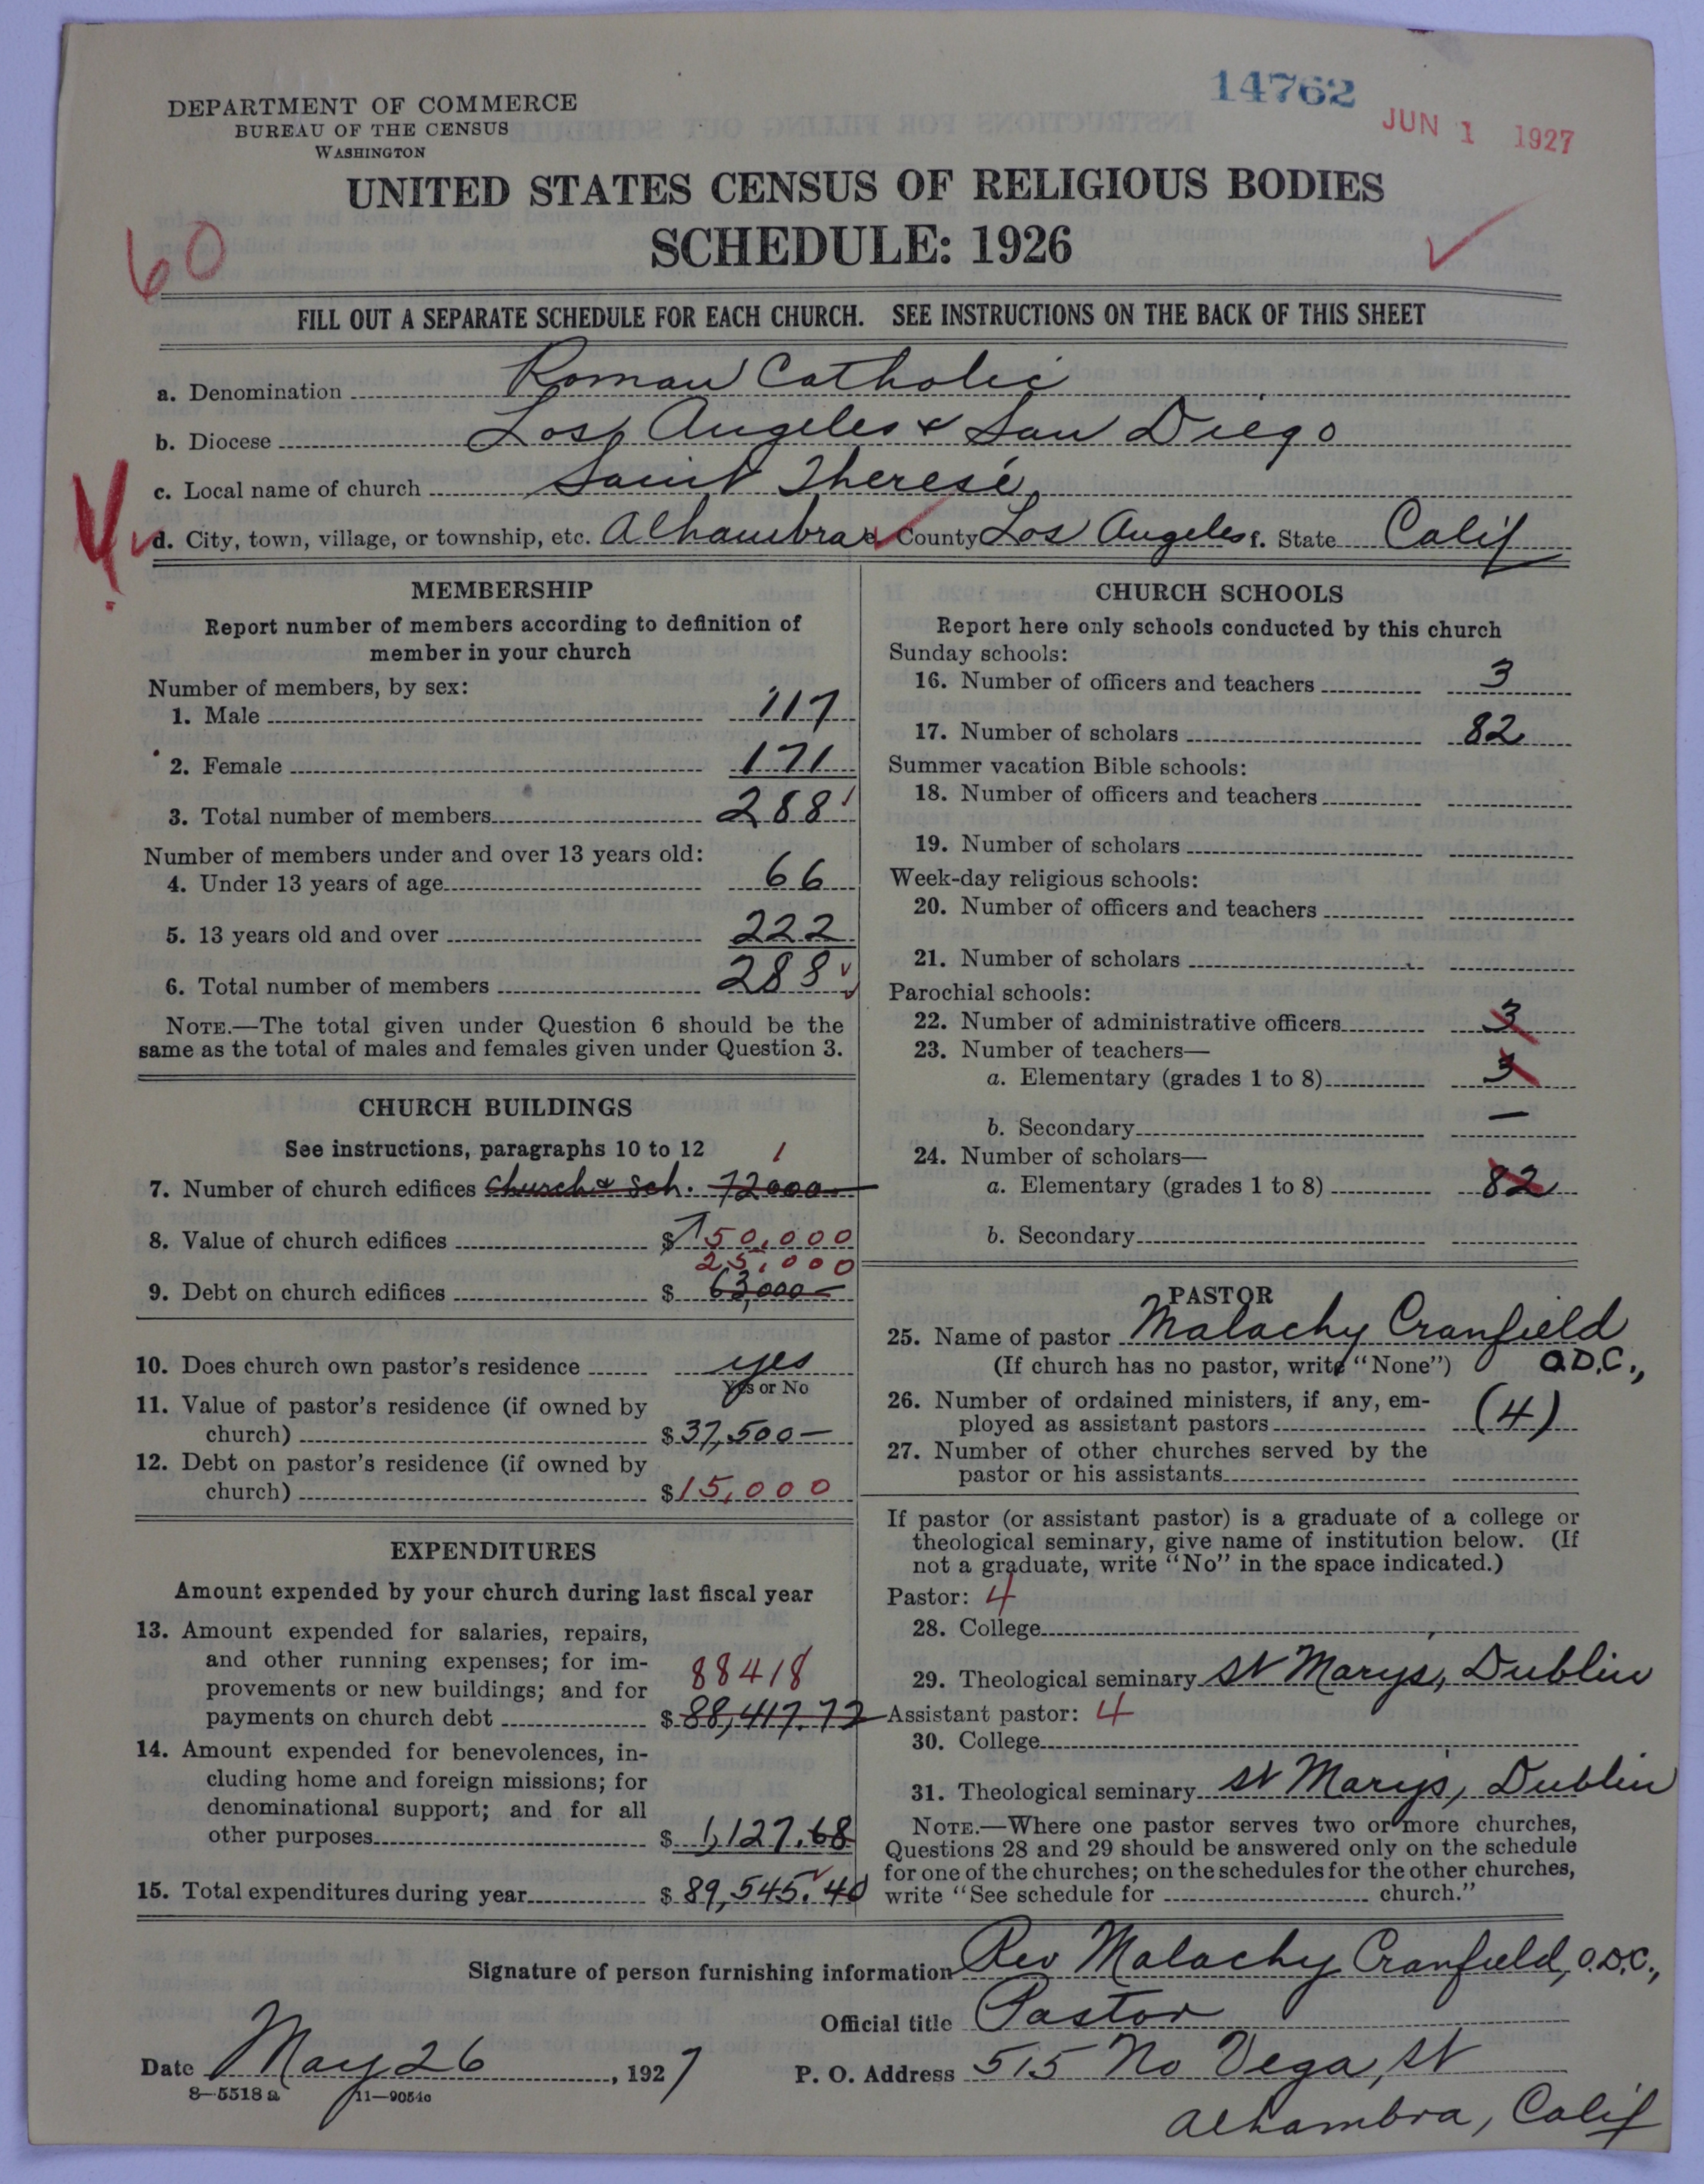 14762
JUN 1 1927
DEPARTMENT OF COMMERCE
BUREAU OF THE CENSUS
WASHINGTON
UNITED STATES CENSUS OF RELIGIOUS BODIES
SCHEDULE: 1926
60
FILL OUT A SEPARATE SCHEDULE FOR EACH CHURCH. SEE INSTRUCTIONS ON THE BACK OF THIS SHEET
a. Denomination Roman Catholic
b. Diocese Los Angeles & San Diego
c. Local name of church Saint Therese
d. City, town, village, or township, etc. Alhambra e. County Los Angeles f. State Calif
MEMBERSHIP
Report number of members according to definition of
member in your church
Number of members, by sex:
1. Male 117
2. Female 171
3. Total number of members 288
Number of members under and over 13 years old:
4. Under 13 years of age 66
5. 13 years old and over 222
6. Total number of members 288
NOTE.—The total given under Question 6 should be the
same as the total of males and females given under Question 3.
CHURCH BUILDINGS
See instructions, paragraphs 10 to 12
1
7. Number of church edifices Church & Sch. 72000
8. Value of church edifices $ 50,000
25,000
9. Debt on church edifices $ 63,000
10. Does church own pastor's residence yes
Yes or No
11. Value of pastor's residence (if owned by
church) $ 37,500—
12. Debt on pastor's residence (if owned by
church) $ 15,000
EXPENDITURES
Amount expended by your church during last fiscal year
13. Amount expended for salaries, repairs,
and other running expenses; for im-
provements or new buildings; and for 88418
payments on church debt $ 88,417.72
14. Amount expended for benevolences, in-
cluding home and foreign missions; for
denominational support; and for all
other purposes $ 1,127.68
15. Total expenditures during year $ 89,545.40
CHURCH SCHOOLS
Report here only schools conducted by this church
Sunday schools:
16. Number of officers and teachers 3
17. Number of scholars 82
Summer vacation Bible schools:
18. Number of officers and teachers
19. Number of scholars
Week-day religious schools:
20. Number of officers and teachers
21. Number of scholars
Parochial schools:
22. Number of administrative officers 3
23. Number of teachers—
a. Elementary (grades 1 to 8) 3
b. Secondary —
24. Number of scholars—
a. Elementary (grades 1 to 8) 82
b. Secondary
PASTOR
25. Name of pastor Malachy Cranfield
(If church has no pastor, write "None") O.D.C.,
26. Number of ordained ministers, if any, em-
ployed as assistant pastors (4)
27. Number of other churches served by the
pastor or his assistants
If pastor (or assistant pastor) is a graduate of a college or
theological seminary, give name of institution below. (If
not a graduate, write "No" in the space indicated.)
Pastor: 4
28. College
29. Theological seminary St Marys, Dublin
Assistant pastor: 4
30. College
31. Theological seminary St Mary's, Dublin
NOTE.—Where one pastor serves two or more churches,
Questions 28 and 29 should be answered only on the schedule
for one of the churches; on the schedules for the other churches,
write "See schedule for church."
Signature of person furnishing information Rev Malachy Cranfield, O.D.C.,
Official title Pastor
Date May 26, 1927 P. O. Address 515 No Vega, St
8—5518 a 11—9054c
Alhambra, Calif